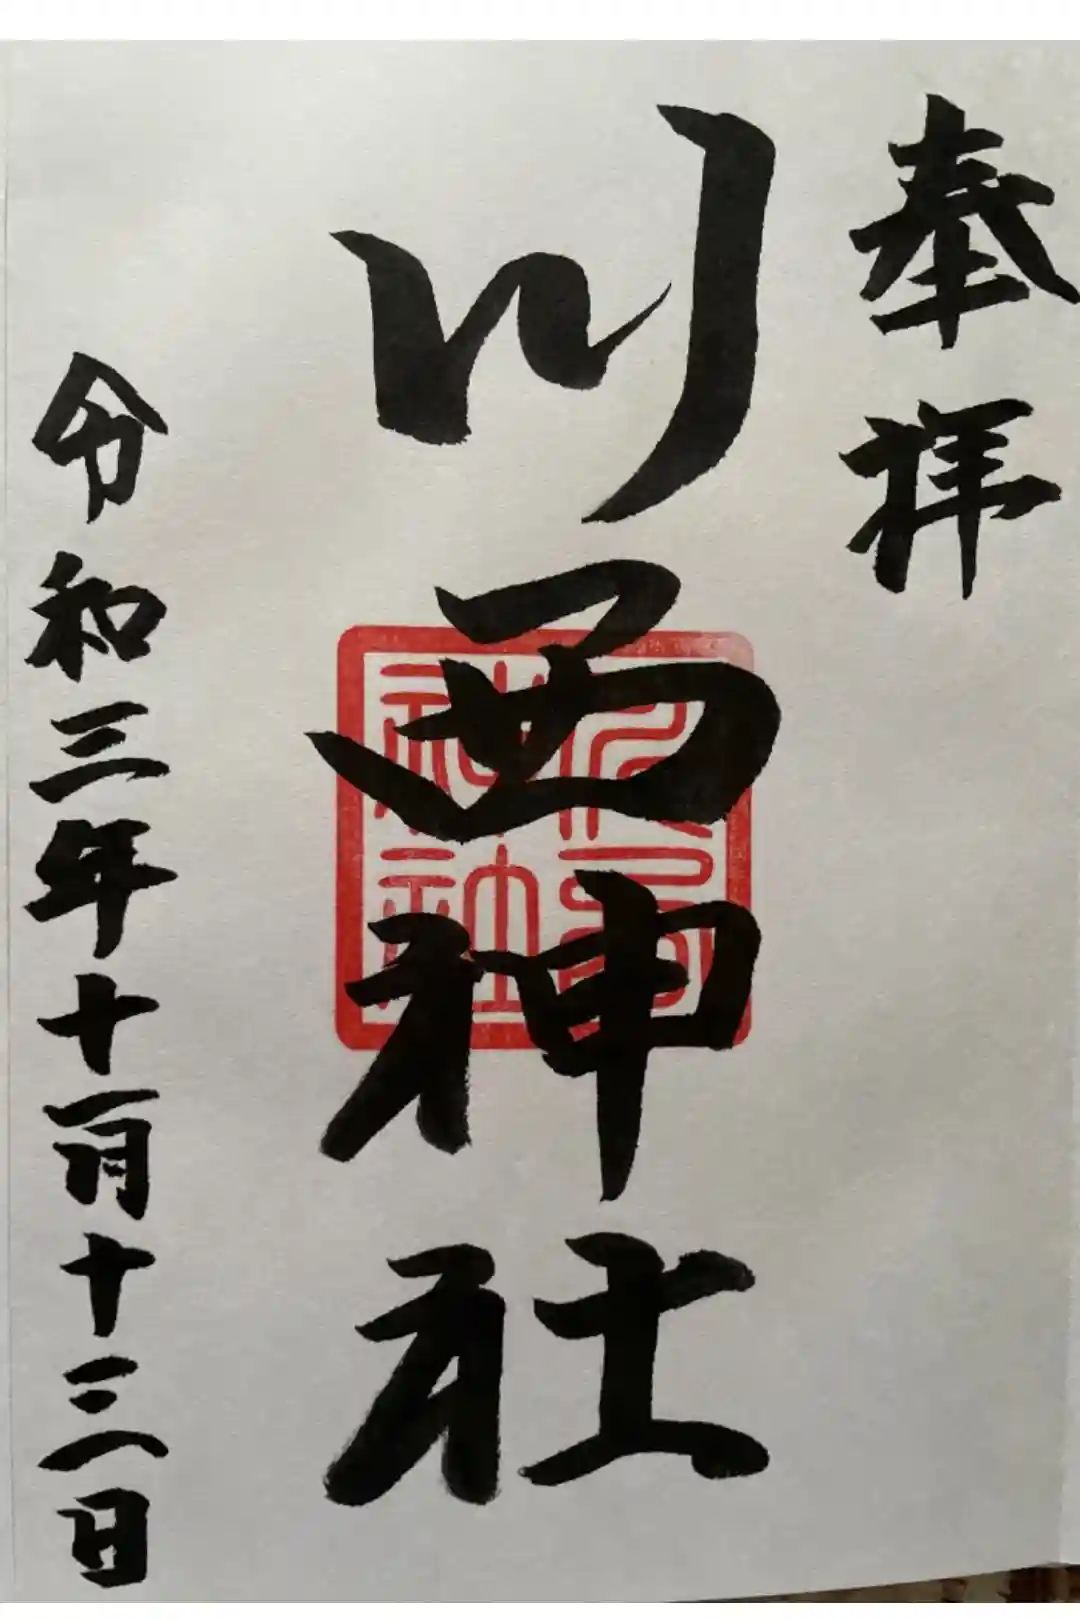 奉拝
川西神社
神社
令和三年十一月十三日